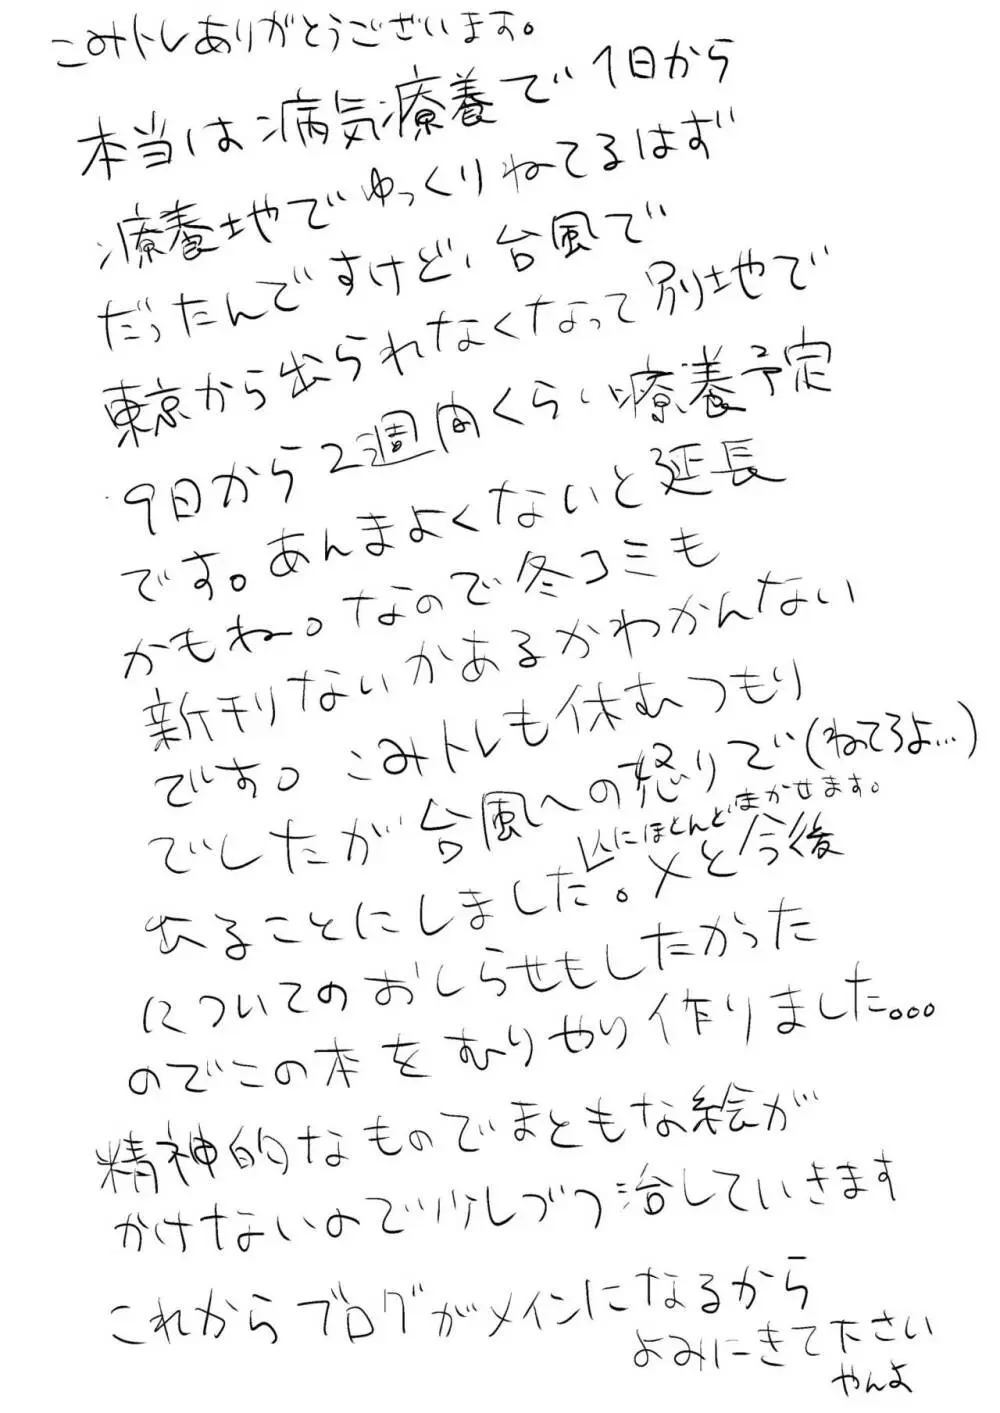 こみトレありがとうございます。
本当は病気療養で1日から
療養地でゆっくりねてるはず
だったんですけど、台風で
東京から出られなくなって別地で
9日から2週間くらい療養予定
です。あんまよくないと延長
かもね。なので冬コミも
新刊ないかあるかわかんない
です。こみトレも休むつもり
でしたが台風への怒りで(ねてろよ…)
出ることにしました。メと今後
人にほとんどまかせます。
についてのおしらせもしたかった
のでこの本をむりやり作りました。。。
精神的なものでまともな絵が
かけないので少しづつ治していきます
これからブログがメインになるから
よみにきて下さい
やんよ